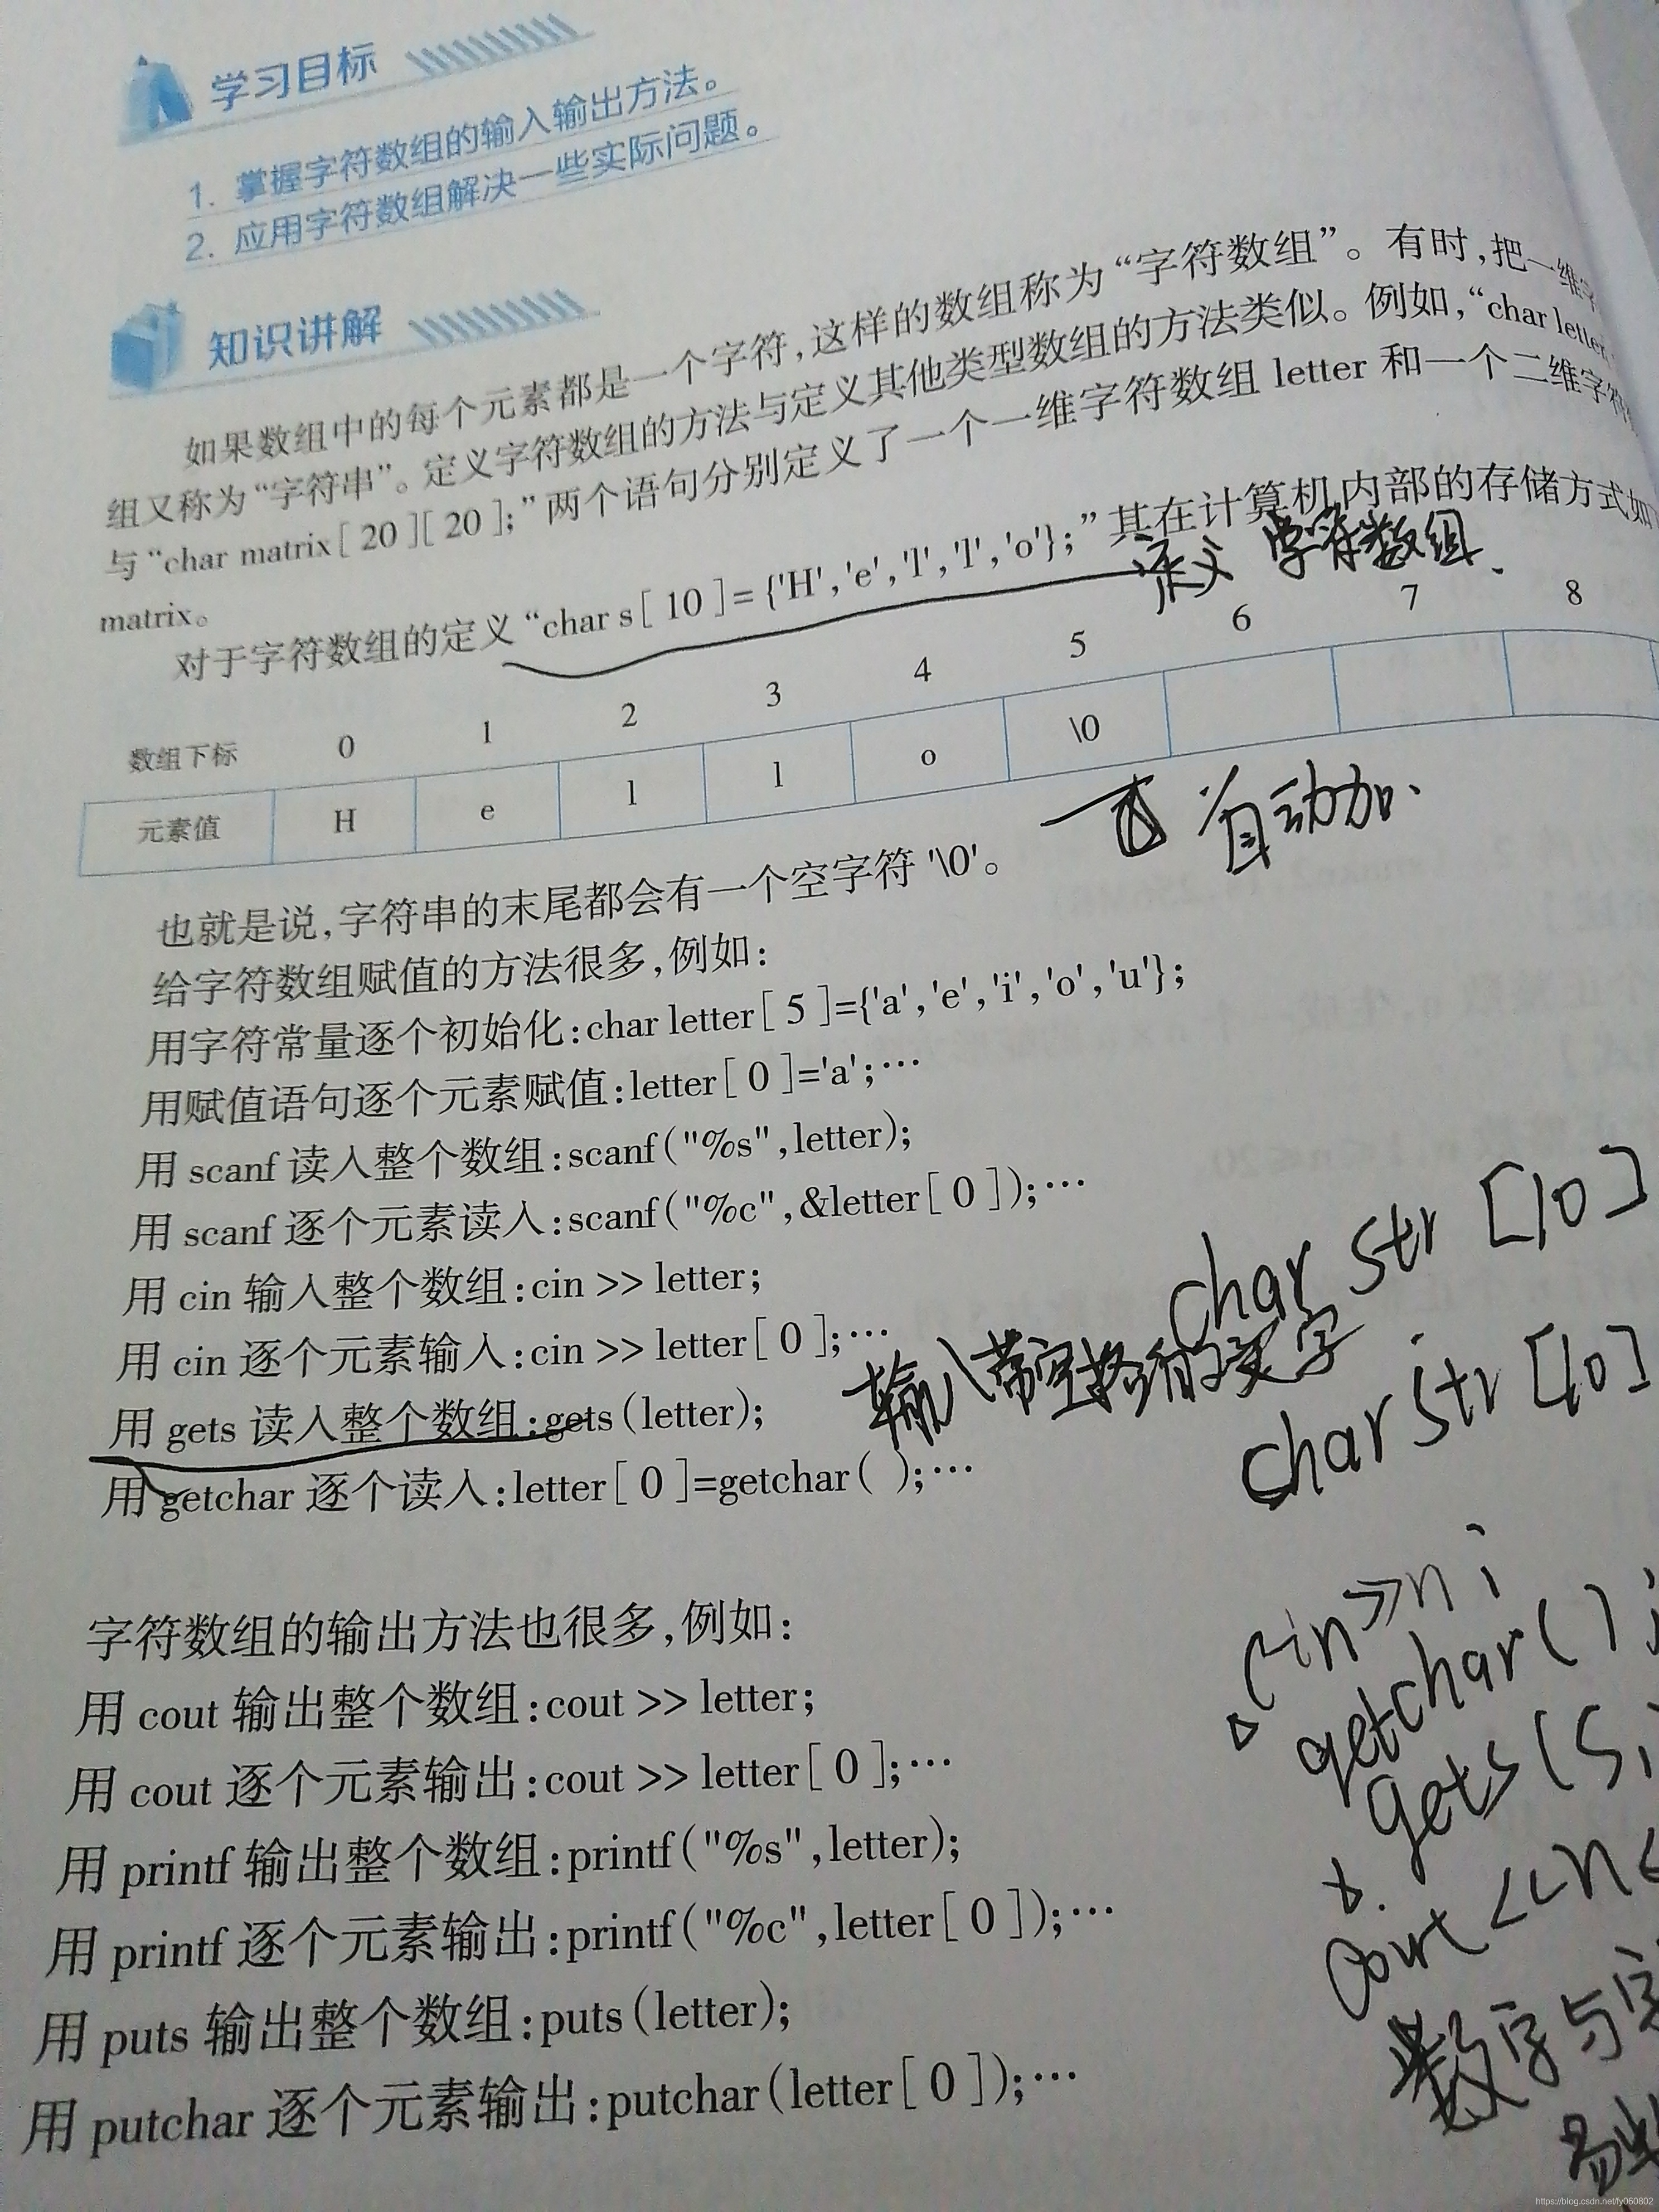 学习目标
1. 掌握字符数组的输入输出方法。
2. 应用字符数组解决一些实际问题。
知识讲解
如果数组中的每个元素都是一个字符,这样的数组称为“字符数组”。有时,把一维字
组又称为“字符串”。定义字符数组的方法与定义其他类型数组的方法类似。例如,“char letter
与“char matrix[ 20 ][ 20 ];”两个语句分别定义了一个一维字符数组 letter 和一个二维字符
matrix。
对于字符数组的定义“char s[ 10 ]= {'H','e','l','l','o'};”其在计算机内部的存储方式如
定义 字符数组.
数组下标 0 1 2 3 4 5 6 7 8
元素值 H e l l o \0
自动加.
也就是说,字符串的末尾都会有一个空字符 '\0'。
给字符数组赋值的方法很多,例如:
用字符常量逐个初始化:char letter[ 5 ]={'a','e','i','o','u'};
用赋值语句逐个元素赋值:letter[ 0 ]='a';…
用 scanf 读入整个数组:scanf("%s",letter);
用 scanf 逐个元素读入:scanf("%c",&letter[ 0 ]);…
char str [10]
用 cin 输入整个数组:cin >> letter;
用 cin 逐个元素输入:cin >> letter[ 0 ];…
输入带空格的文字
char str [10]
用 gets 读入整个数组:gets(letter);
用 getchar 逐个读入:letter[ 0 ]=getchar( );…
cin>>n;
getchar();
gets(s)
cout<<n<
数字与字
字符数组的输出方法也很多,例如:
用 cout 输出整个数组:cout >> letter;
用 cout 逐个元素输出:cout >> letter[ 0 ];…
用 printf 输出整个数组:printf("%s",letter);
用 printf 逐个元素输出:printf("%c",letter[ 0 ]);…
用 puts 输出整个数组:puts(letter);
用 putchar 逐个元素输出:putchar(letter[ 0 ]);…
https://blog.csdn.net/fy060802